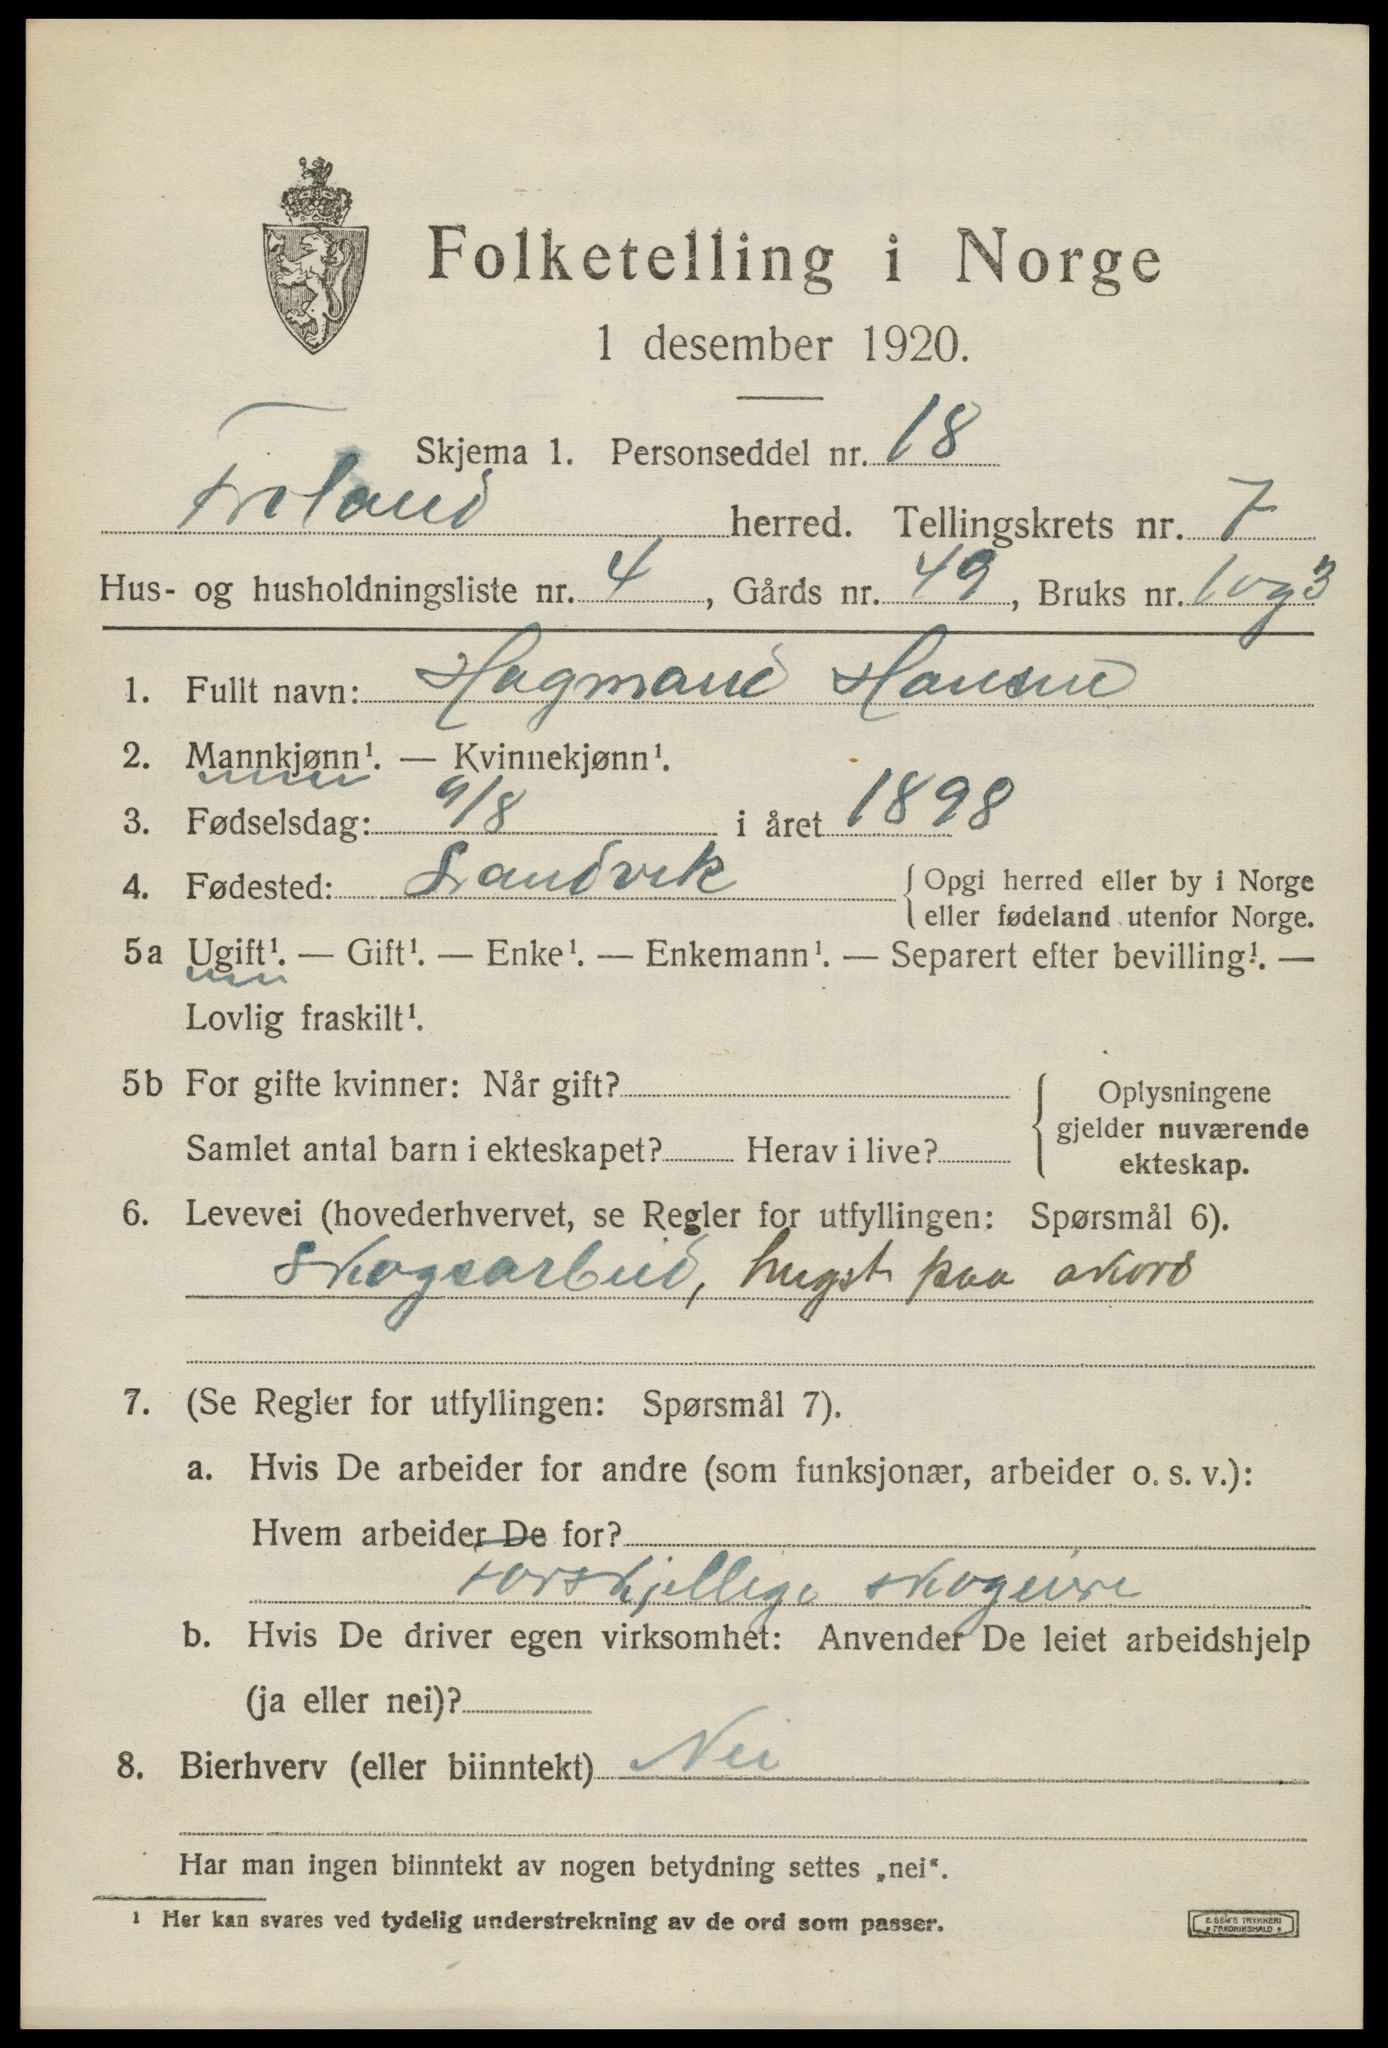 Folketelling i Norge
1 desember 1920.
Skjema 1. Personseddel nr. 18
Froland herred. Tellingskrets nr. 7
Hus- og husholdningsliste nr. 4, Gårds nr. 49, Bruks nr. 1 og 3
1. Fullt navn: Hagmand Hansen
2. Mannkjønn¹. — Kvinnekjønn¹.
3. Fødselsdag: 9/8 i året 1898
4. Fødested: Landvik { Opgi herred eller by i Norge
eller fødeland utenfor Norge.
5a Ugift¹. — Gift¹. — Enke¹. — Enkemann¹. — Separert efter bevilling¹. —
Lovlig fraskilt¹.
5b For gifte kvinner: Når gift? { Oplysningene
gjelder nuværende
Samlet antal barn i ekteskapet? Herav i live?
ekteskap.
6. Levevei (hovederhvervet, se Regler for utfyllingen: Spørsmål 6).
Skogsarbeid, hugst paa akord
7. (Se Regler for utfyllingen: Spørsmål 7).
a. Hvis De arbeider for andre (som funksjonær, arbeider o. s. v.):
Hvem arbeider De for?
Forskjellige skogeiere
b. Hvis De driver egen virksomhet: Anvender De leiet arbeidshjelp
(ja eller nei)?
8. Bierhverv (eller biinntekt) Nei
Har man ingen biinntekt av nogen betydning settes „nei“.
¹ Her kan svares ved tydelig understrekning av de ord som passer.
E. SEM'S TRYKKERI
FREDRIKSHALD